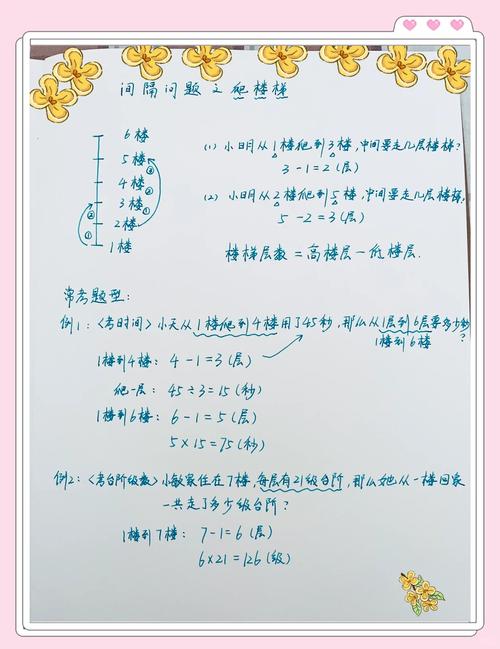 间隔问题之爬楼梯
6楼
5楼
4楼
3楼
2楼
1楼
② ①
③ ② ①
(1) 小明从1楼爬到3楼,中间要走几层楼梯?
3-1=2(层)
(2) 小明从2楼爬到5楼,中间要走几层楼梯,
5-2=3(层)
楼梯层数=高楼层-低楼层.
常考题型:
例1:〈考时间〉小天从1楼爬到4楼用了45秒,那么从1层到6层要多少秒?
1楼到6楼
1楼到4楼: 4-1=3(层)
爬一层: 45÷3=15(秒)
1楼到6楼: 6-1=5(层)
5×15=75(秒)
例2:〈考台阶级数〉小敏家住在7楼,每层有21级台阶,那么她从一楼回家
一共走了多少级台阶?
1楼到7楼: 7-1=6(层)
6×21=126(级)